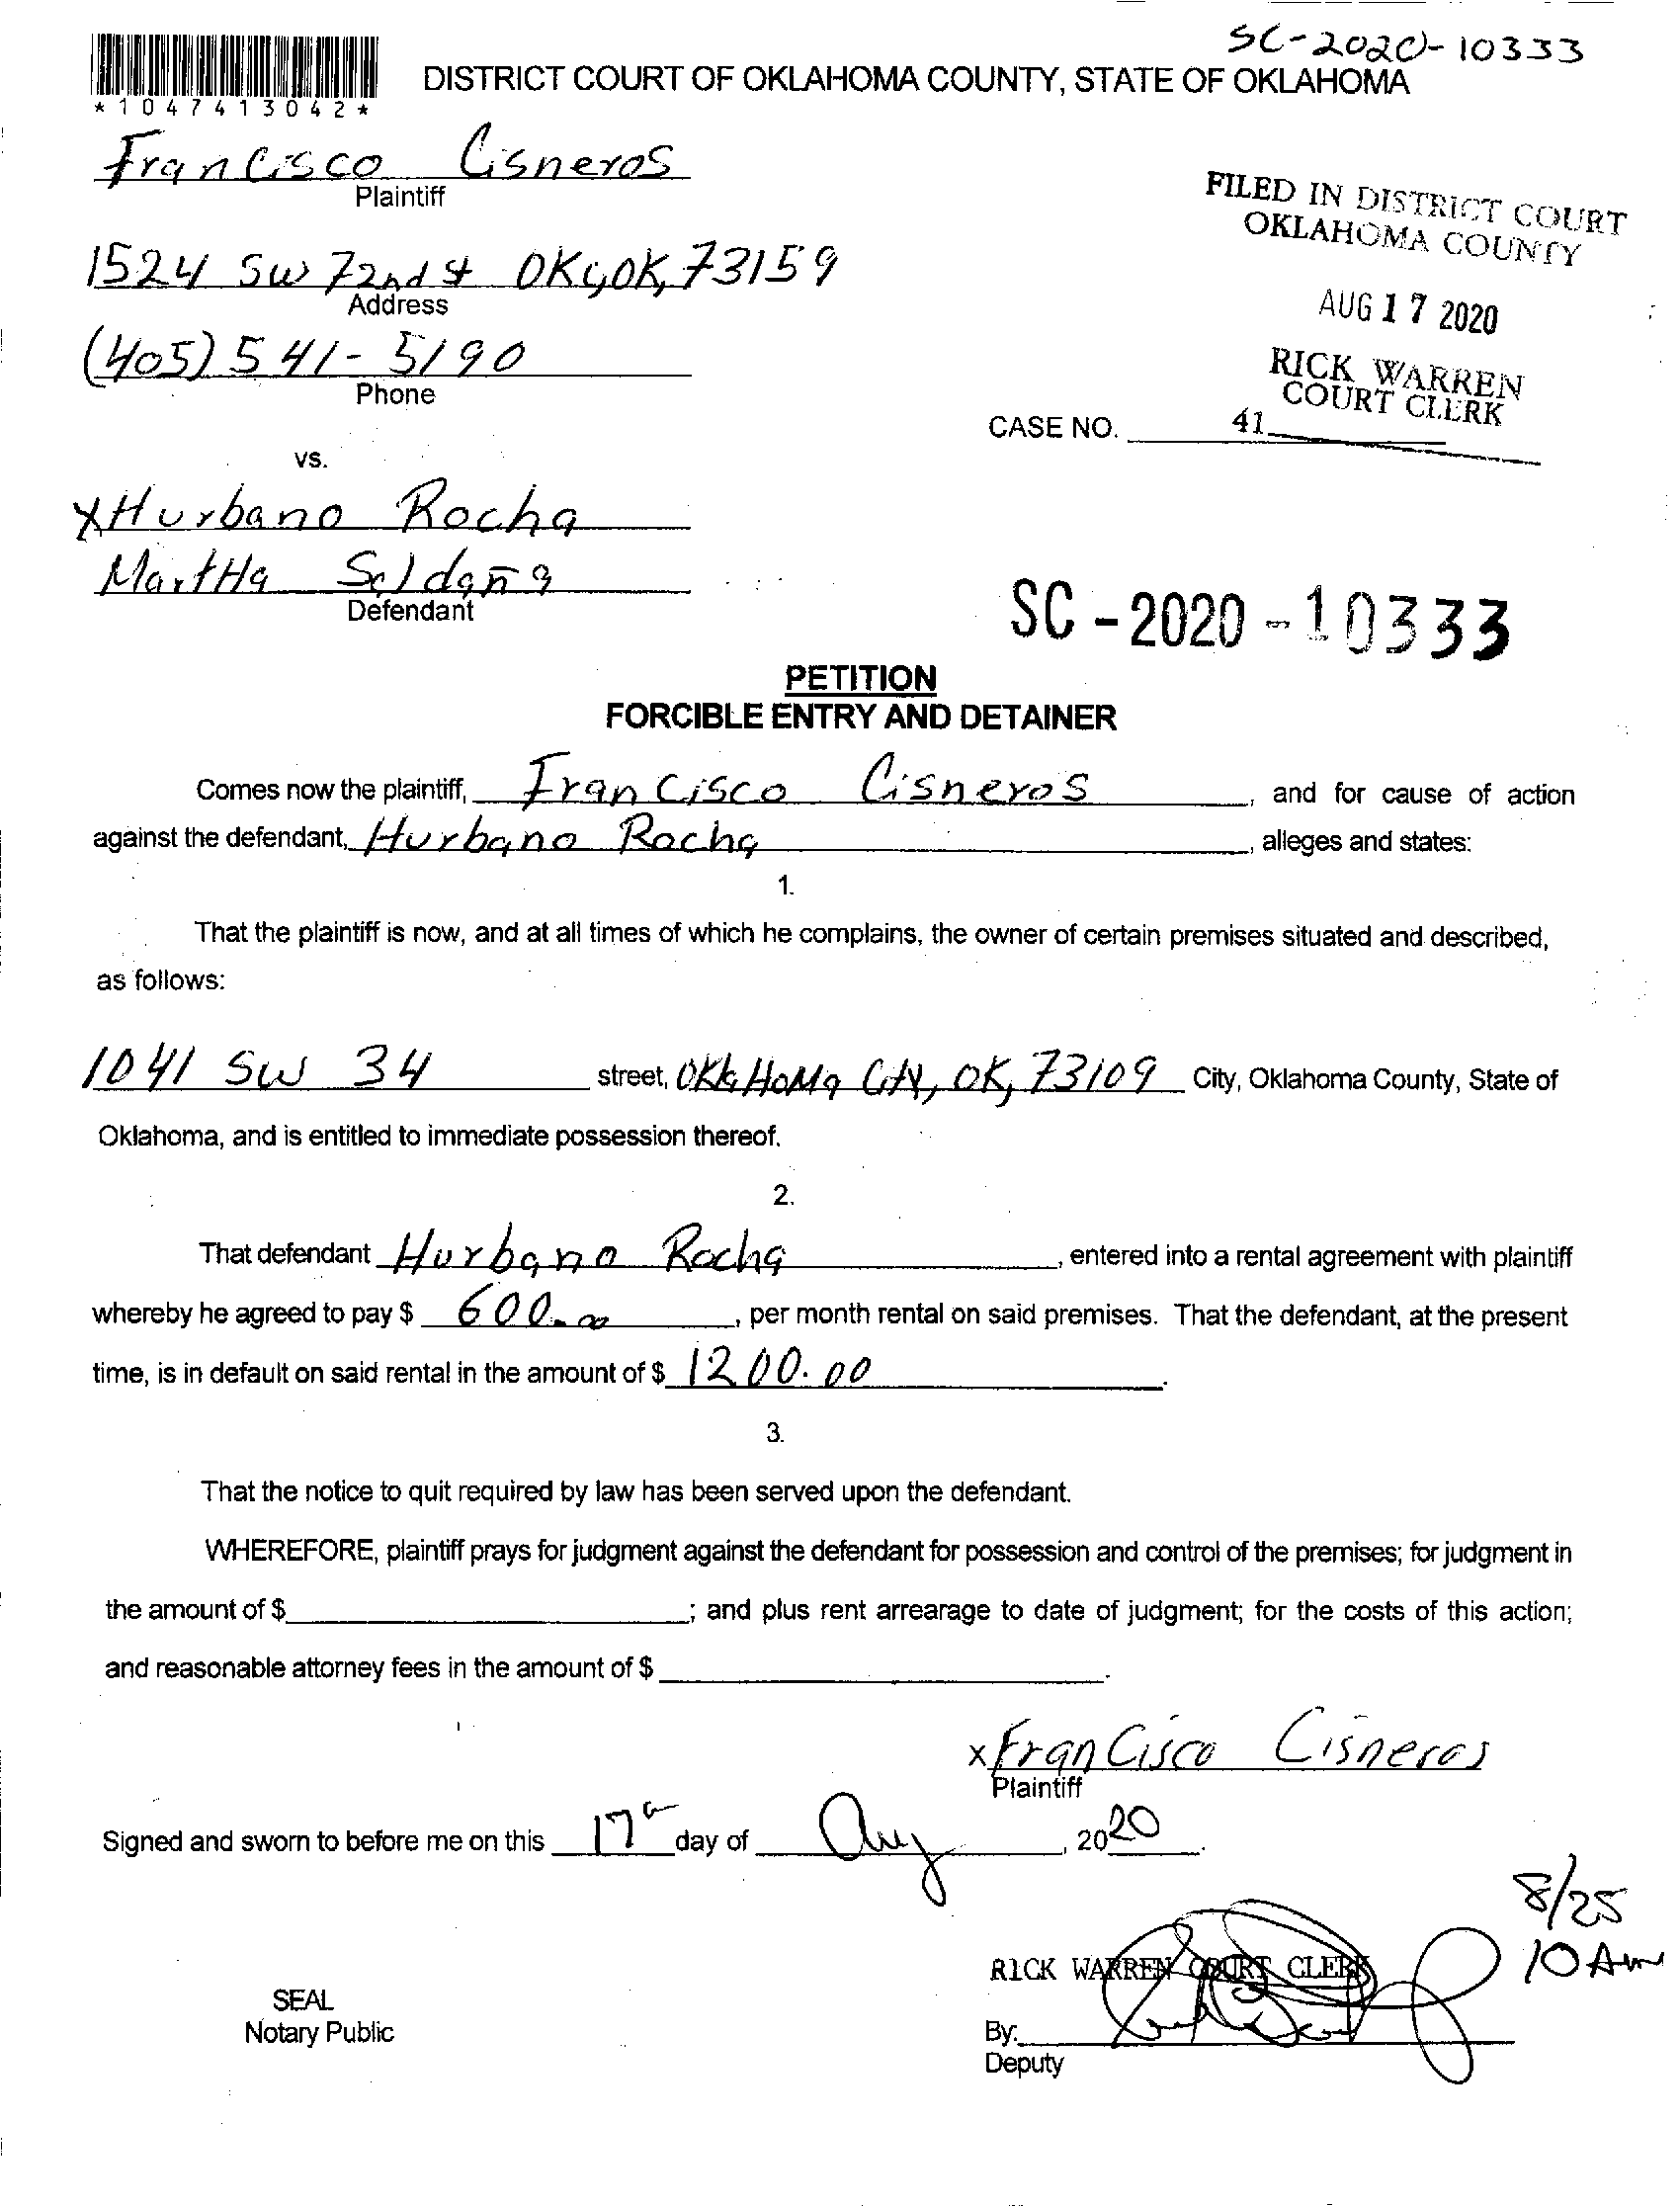 SC-2020-10333
*1047413042*
DISTRICT COURT OF OKLAHOMA COUNTY, STATE OF OKLAHOMA
Francisco Cisneros
Plaintiff
FILED IN DISTRICT COURT
OKLAHOMA COUNTY
1524 SW 72nd st OKC,OK, 73159
Address
AUG 17 2020
(405) 541-5190
Phone
RICK WARREN
COURT CLERK
CASE NO. 41
vs.
X Hurbano Rocha
MartHa Saldaña
Defendant
SC-2020-10333
PETITION
FORCIBLE ENTRY AND DETAINER
Comes now the plaintiff, Francisco Cisneros, and for cause of action
against the defendant, Hurbano Rocha, alleges and states:
1.
That the plaintiff is now, and at all times of which he complains, the owner of certain premises situated and described,
as follows:
1041 SW 34 street, OKlaHoMa City, OK, 73109 City, Oklahoma County, State of
Oklahoma, and is entitled to immediate possession thereof.
2.
That defendant Hurbano Rocha, entered into a rental agreement with plaintiff
whereby he agreed to pay $ 600.00, per month rental on said premises. That the defendant, at the present
time, is in default on said rental in the amount of $ 1200.00.
3.
That the notice to quit required by law has been served upon the defendant.
WHEREFORE, plaintiff prays for judgment against the defendant for possession and control of the premises; for judgment in
the amount of $ ; and plus rent arrearage to date of judgment; for the costs of this action;
and reasonable attorney fees in the amount of $ .
x FranCisco Cisneros
Plaintiff
Signed and sworn to before me on this 17 day of Aug, 2020.
8/25
10 Am
RICK WARREN COURT CLERK
SEAL
Notary Public
By:
Deputy